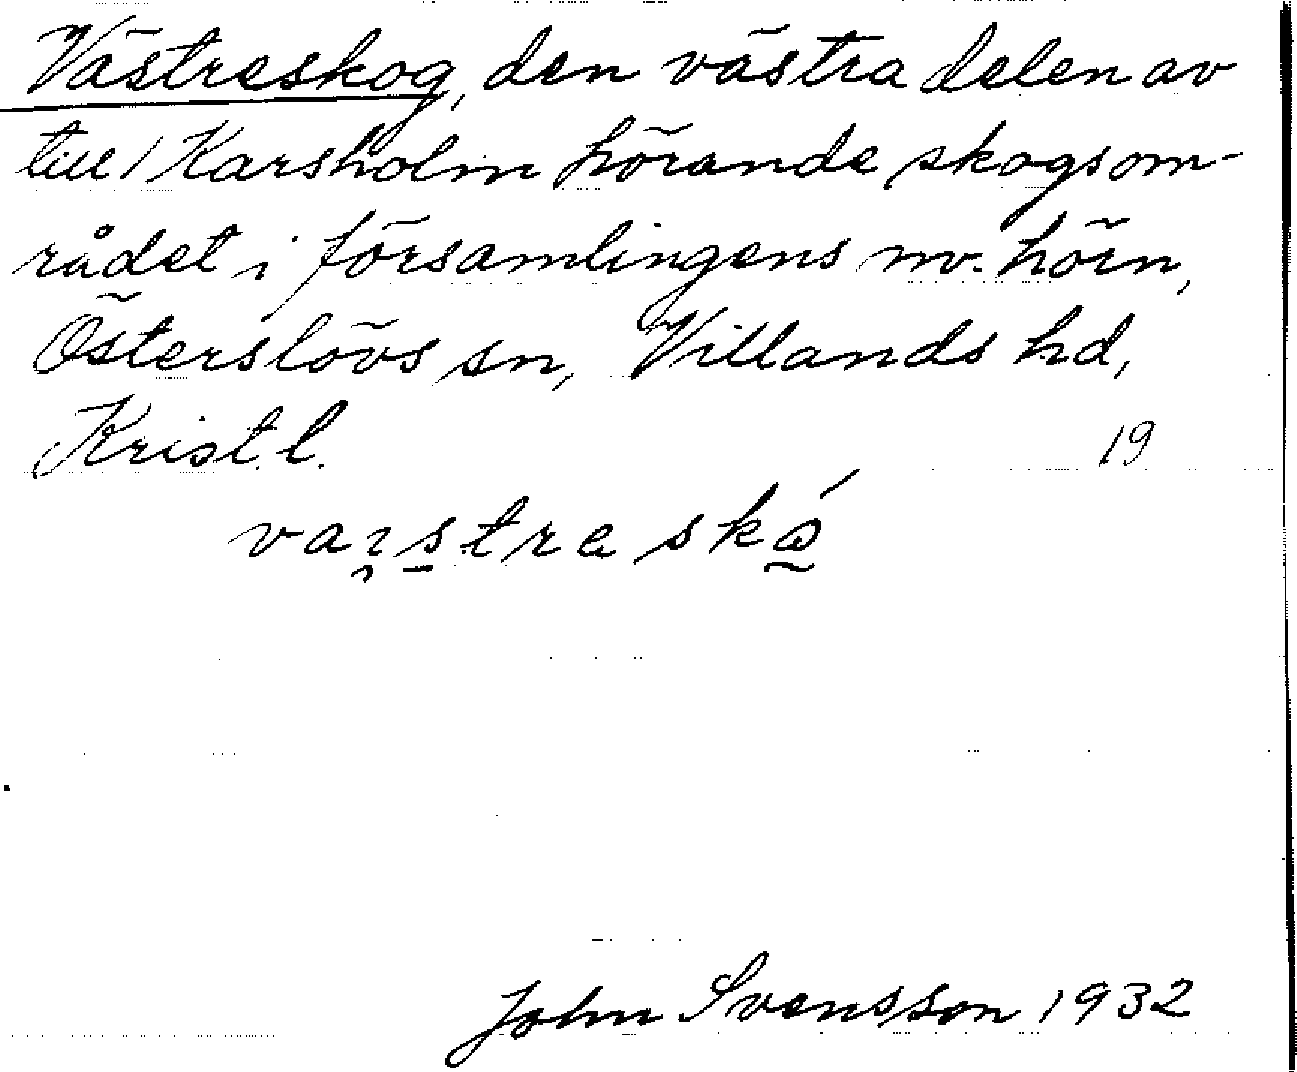 Västreskog, den västra delen av
till Karsholm hörande skogsom-
rådet i församlingens nv. hörn,
Österslövs sn, Villands hd,
Krist. l. 19
John Svensson 1932